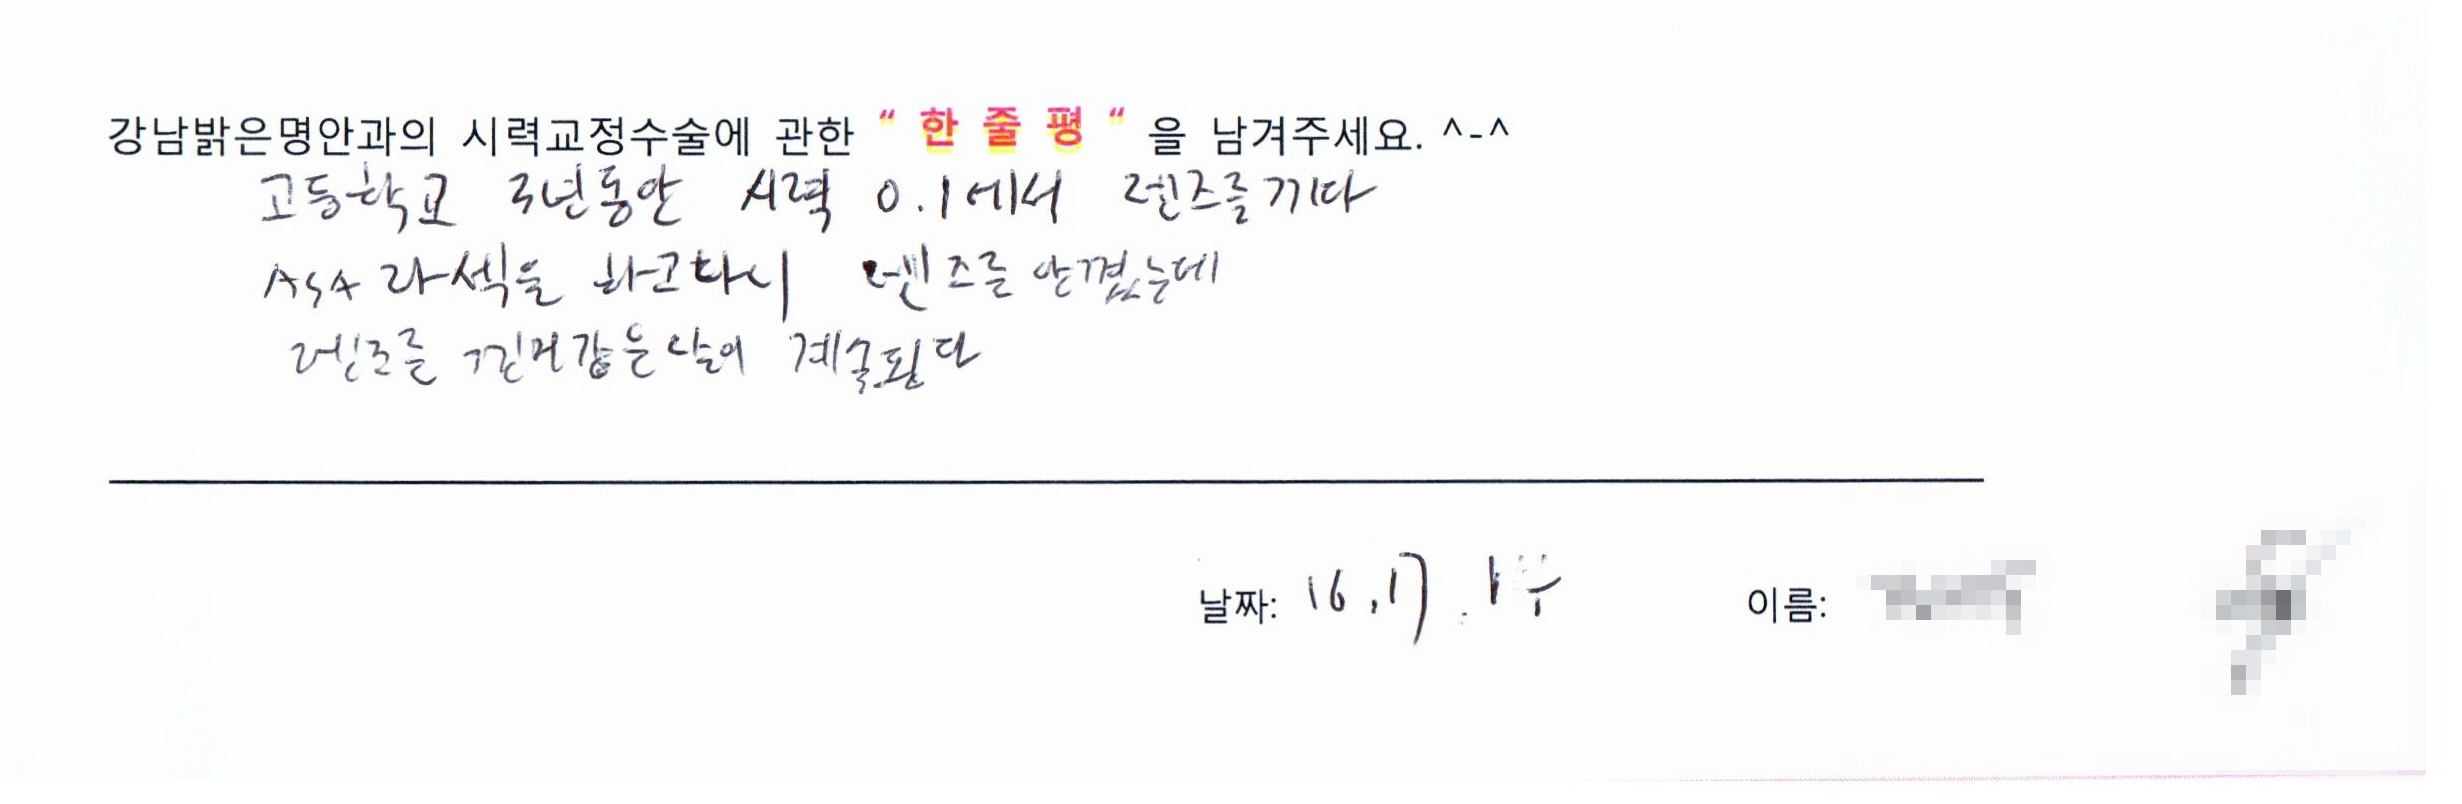 강남밝은명안과의 시력교정수술에 관한 “ 한 줄 평 “ 을 남겨주세요. ^-^
고등학교 3년동안 시력 0.1에서 렌즈를 끼다
ASA 라섹을 하고 다시 렌즈를 안꼈는데
렌즈를 낀거같은 날이 계속된다
날짜: 16.17. 이름: